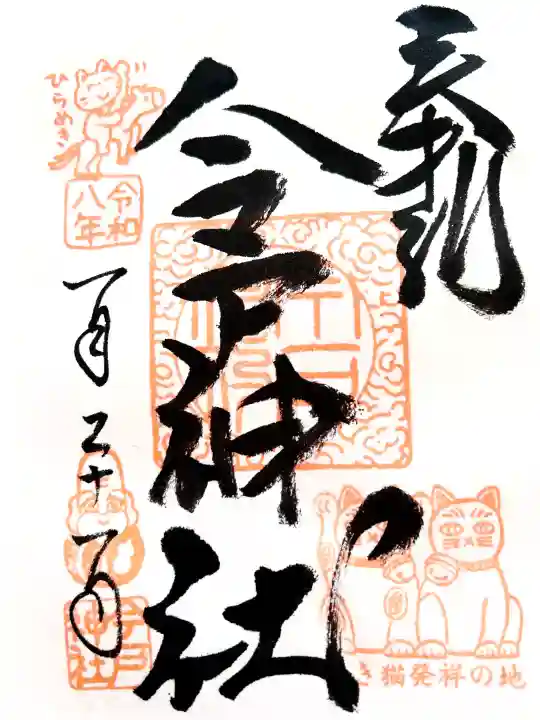 奉拝
今戸神社
き猫発祥の地
ひらめき
令和
八年
一月二十一日
今戸
神社